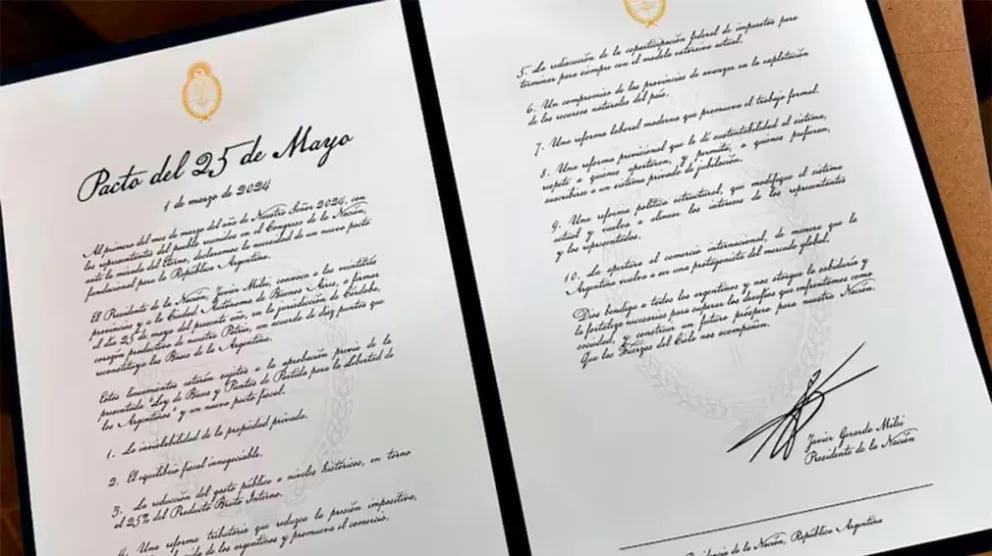 Pacto del 25 de Mayo
1 de marzo de 2024
Al primero del mes de marzo del año de Nuestro Señor 2024, con
los representantes del pueblo reunidos en el Congreso de la Nación,
ante la mirada del Eterno, declaramos la necesidad de un nuevo pacto
fundacional para la República Argentina.
El Presidente de la Nación, Javier Milei, convoca a las veintitrés
provincias y a la Ciudad Autónoma de Buenos Aires, a firmar
el día 25 de mayo del presente año, en la jurisdicción de Córdoba,
corazón productivo de nuestra Patria, un acuerdo de diez puntos que
reconstituya las Bases de la Argentina.
Estos lineamientos estarán sujetos a la aprobación previa de la
presentada "Ley de Bases y Puntos de Partida para la libertad de
los Argentinos" y un nuevo pacto fiscal.
1. La inviolabilidad de la propiedad privada.
2. El equilibrio fiscal innegociable.
3. La reducción del gasto público a niveles históricos, en torno
al 25% del Producto Bruto Interno.
4. Una reforma tributaria que reduzca la presión impositiva,
vida de los argentinos y promueva el comercio.
5. La rediscusión de la coparticipación federal de impuestos para
terminar para siempre con el modelo extorsivo actual.
6. Un compromiso de las provincias de avanzar en la explotación
de los recursos naturales del país.
7. Una reforma laboral moderna que promueva el trabajo formal.
8. Una reforma previsional que le dé sustentabilidad al sistema,
respete a quienes aportaron, y permita, a quienes prefieran,
suscribirse a un sistema privado de jubilación.
9. Una reforma política estructural, que modifique el sistema
actual y vuelva a alinear los intereses de los representantes
y los representados.
10. La apertura al comercio internacional, de manera que la
Argentina vuelva a ser una protagonista del mercado global.
Dios bendiga a todos los argentinos y nos otorgue la sabiduría y
la fortaleza necesarias para superar los desafíos que enfrentamos como
sociedad, y construir un futuro próspero para nuestra Nación.
Que las Fuerzas del Cielo nos acompañen.
Javier Gerardo Milei
Presidente de la Nación
Presidencia de la Nación, República Argentina